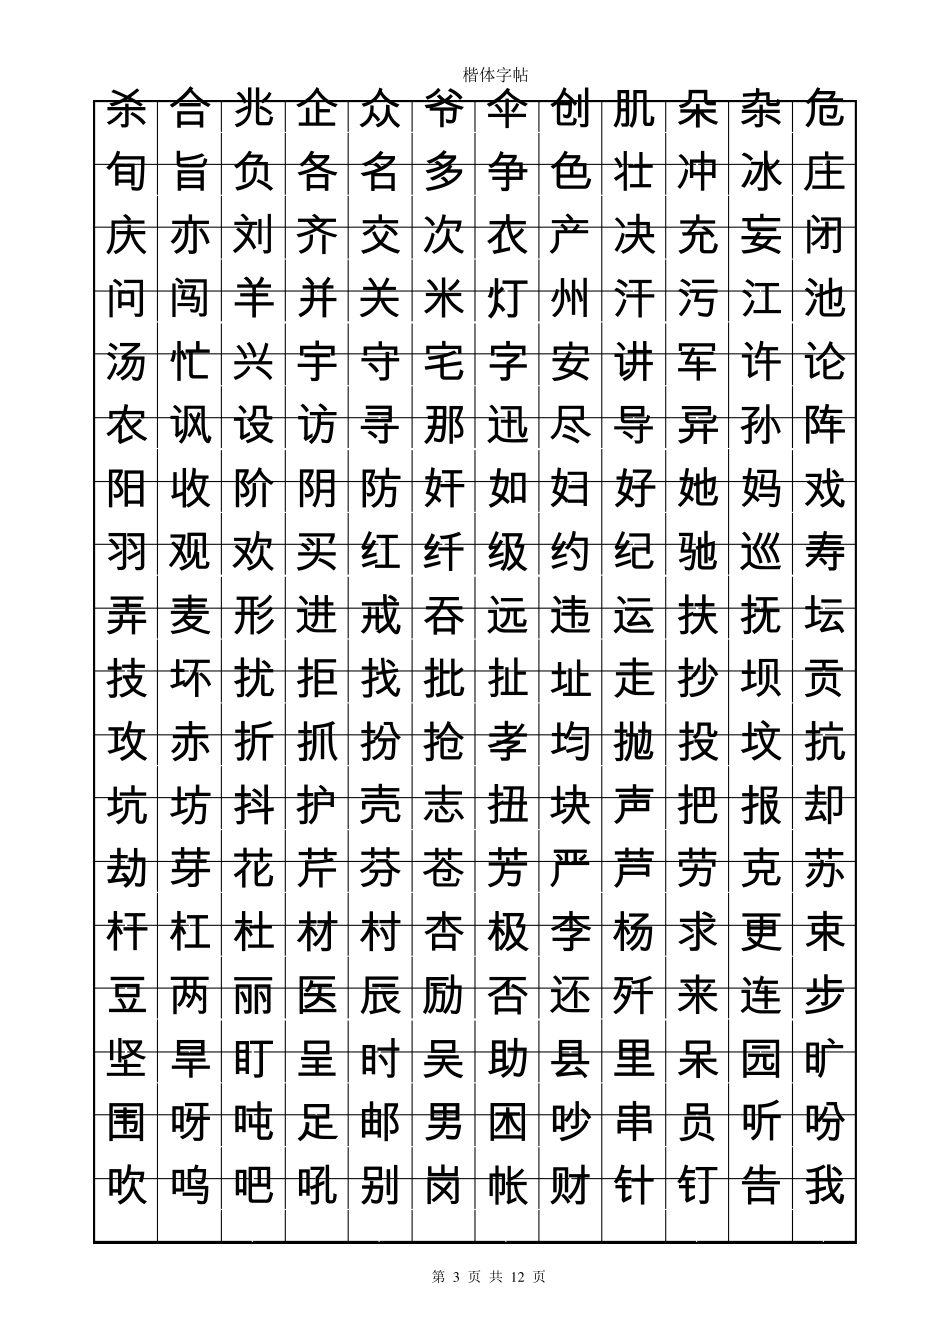 楷体字帖
杀合兆企众爷伞创肌朵杂危
旬旨负各名多争色壮冲冰庄
庆亦刘齐交次衣产决充妄闭
问闯羊并关米灯州汗污江池
汤忙兴宇守宅字安讲军许论
农讽设访寻那迅尽导异孙阵
阳收阶阴防奸如妇好她妈戏
羽观欢买红纤级约纪驰巡寿
弄麦形进戒吞远违运扶抚坛
技坏扰拒找批扯址走抄坝贡
攻赤折抓扮抢孝均抛投坟抗
坑坊抖护壳志扭块声把报却
劫芽花芹芬苍芳严芦劳克苏
杆杠杜材村杏极李杨求更束
豆两丽医辰励否还歼来连步
坚旱盯呈时吴助县里呆园旷
围呀吨足邮男困吵串员听吩
吹呜吧吼别岗帐财针钉告我
第 3 页 共 12 页